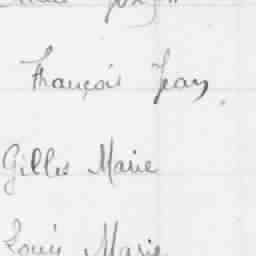 François Jean
Gilles Marie
Louis Marie